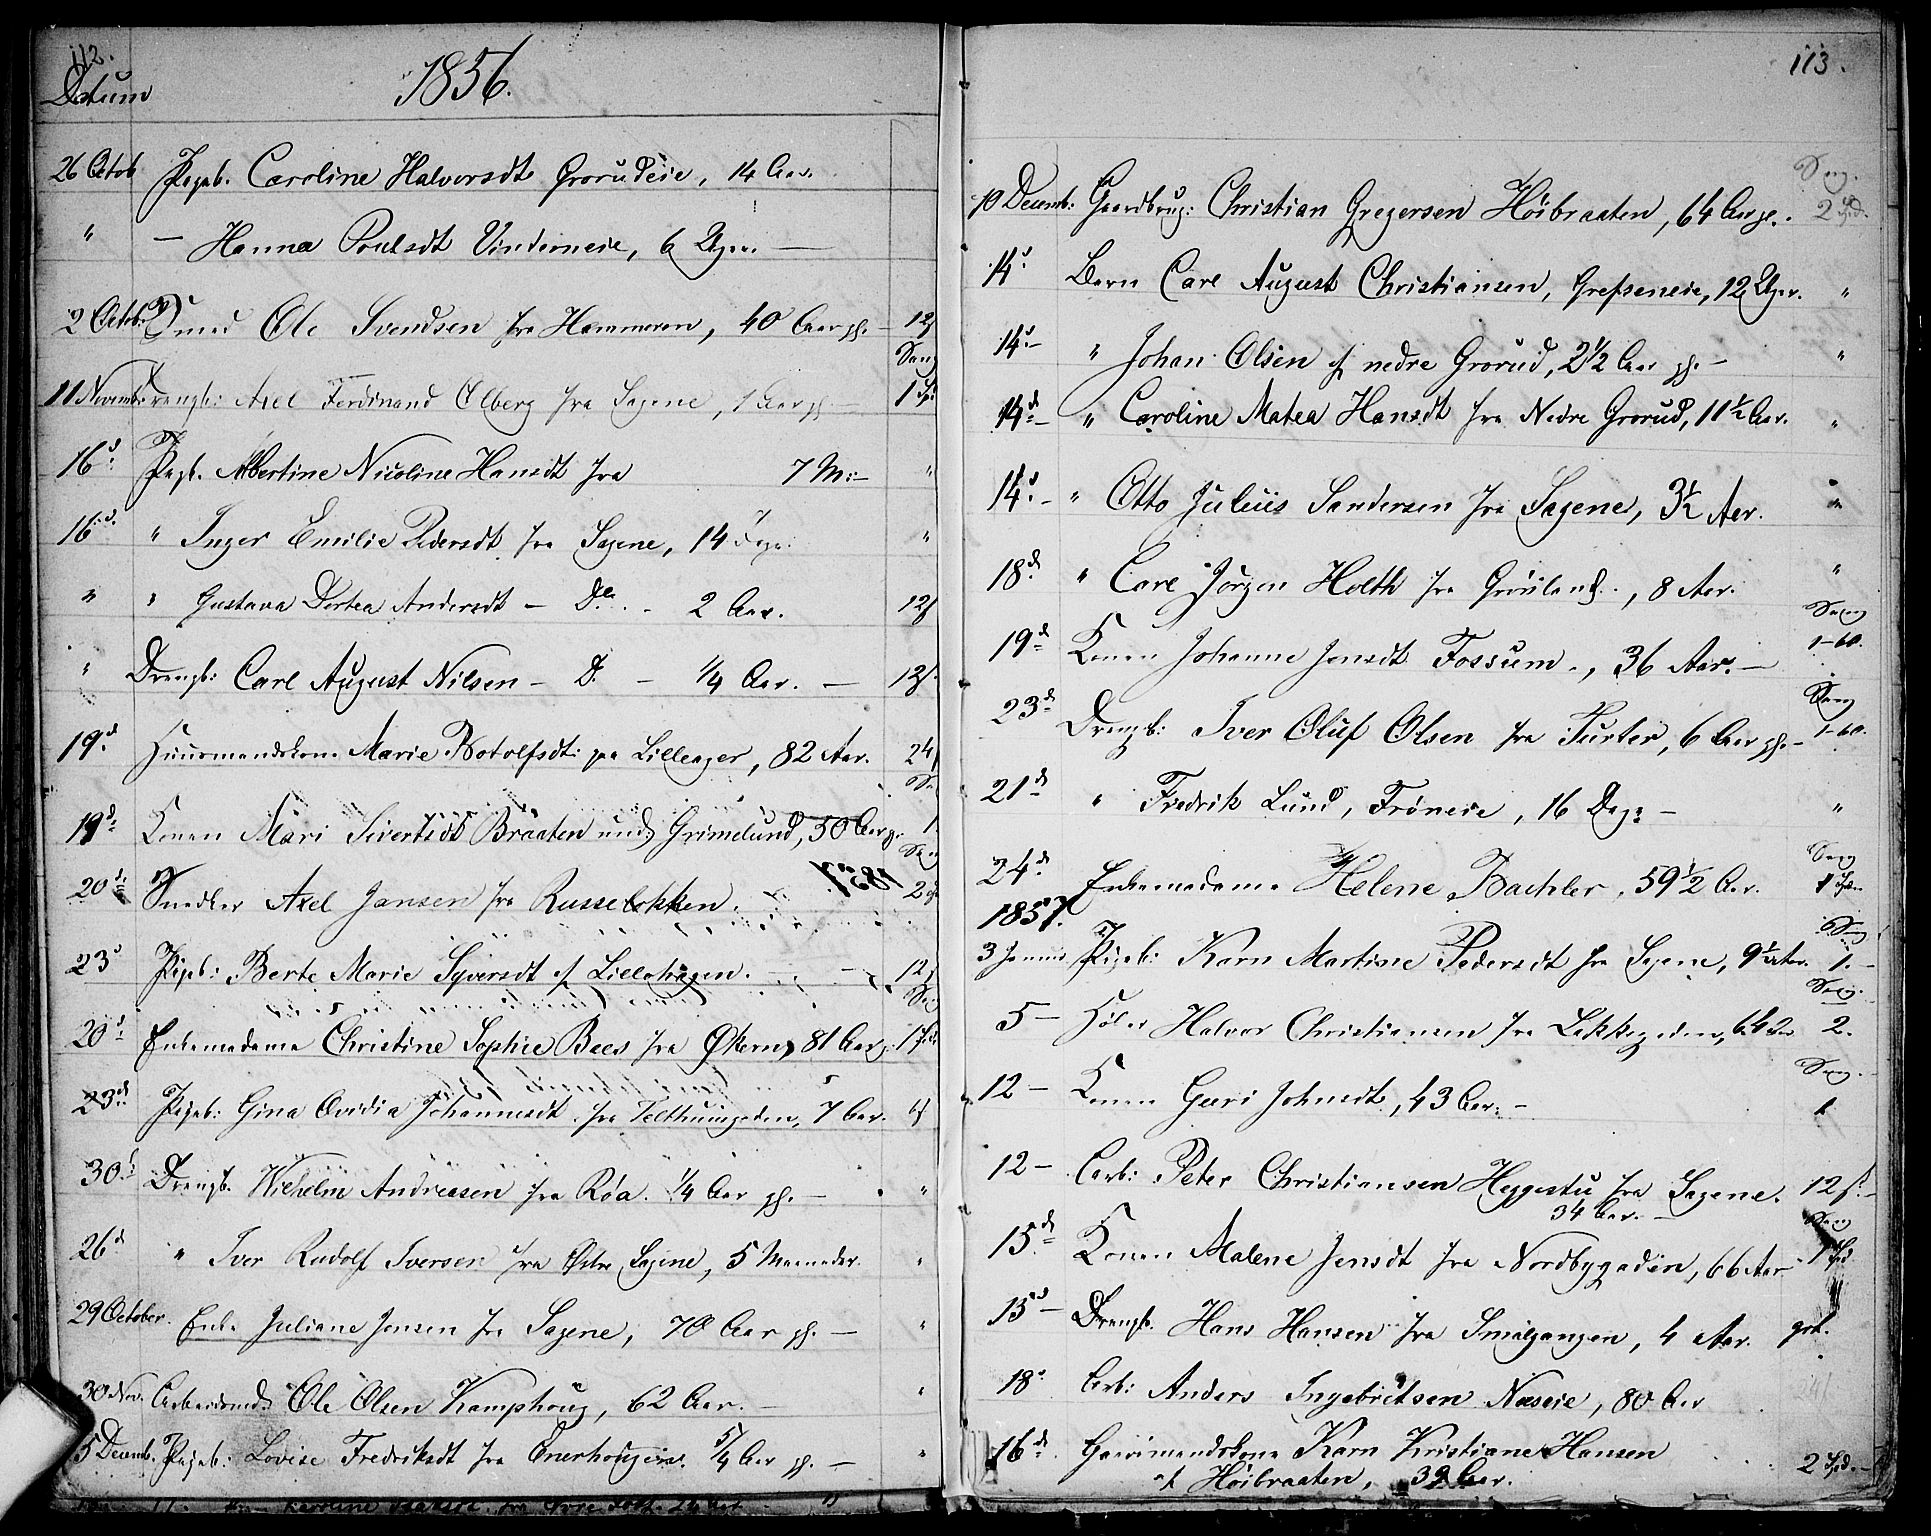 112.
Datum 1856.
26 Octob Pigeb. Caroline Halvorsdt Grorudeie, 14 Aar.
" — Hanna Poulsdt Vinderneie, 6 Uger. —
2 Octob. Smed Ole Svendsen fra Hammeren, 40 Aar gl. — 12ſ
Sang
11 Novemb. Drengb: Axel Ferdinand Olberg fra Sagene, 1 Aar gl 1 Spd
16d: Pigb. Albertine Nicoline Hansdt fra 7 M:— "
16d. " Inger Emilie Pedersdt fra Sagene, 14 Dage. "
" " Gustava Dortea Andersdt — Do. — 2 Aar. 12ſ
" Drengb: Carl August Nilsen — D. — 1/4 Aar. — 12ſ.
19.d Huusmandskone Marie Botolfsdt: paa Lilleager, 82 Aar. 24ſ
Sa
19d: Konen Mari Sivertsdt Braaten und. Grimelund, 50 Aar g. 1.
Sang
20d: Snedker Axel Jansen fra Russeløkken. 2
23d Pigeb: Berte Marie Syversdt af Lillehagen. — 12ſ
Sang
20d: Enkemadame Christine Sophie Bees fra Økern, 81 Aar g: 1
23d: Pigeb: Gina Ovidia Johannesdt fra Telthuusgaden, 7 Aar.
30d: Drengb. Wilhelm Andreasen fra Røa. 1/4 Aar gl. — "
26d " Iver Rudolf Iversen fra Østre Sagene, 5 Maaneder. "
29 October. Enke Juliane Jensen fra Sagene, 70 Aar gl. — "
30 Nov. Arbeidsmd. Ole Olsen Kamphoug, 62 Aar. — "
5 Decemb. Pigeb: Lovise Fredriksdt fra Enerhougen. 5/4 Aar gl. — "
113.
Sang.
10 Decemb: Gaardbrug: Christian Gregersen Høibraaten, 64 Aar gl. 2 Spd.
14d: Barn Carl August Christiansen, Grefseneie, 12 Uger. "
14d:— " Johan Olsen af nedre Grorud, 2 1/2 Aar gl. — "
14d:— " Caroline Matea Hansdt fra Nedre Grorud, 11 1/2 Aar. "
14d:— " Otto Julius Sandersen fra Sagene, 3 1/2 Aar. "
18d: " Carl Jørgen Holth fra Grønland., 8 Aar. "
Sang
19d Konen Johanne Jensdt Fossum., 36 Aar. — 1-60.
Sang
23d Drengb: Iver Oluf Olsen fra Furter, 6 Aar gl. — 1-60.
21d " Fredrik Lund, Frøneie, 16 Dage — "
Sang
24d Enkemadame Helene Bachler, 59 1/2 Aar. 1 Spd
1857.
Sang
3 Januar. Pigeb: Karn Martine Pedersdt fra Sagene, 9 1/2 Aar. 1. —
Sang.
5 — Halvor Christiansen fra Lakkegaden, 64 Aar 2.
Sang.
12 — Konen Guri Johnsdt, 43 Aar. — 1
12 — Arb: Peter Christiansen Heggestu fra Sagene. 12 ſ. —
34 Aar. —
Sang
15d Konen Malene Jensdt fra Nordbygaden, 66 Aar 1 Spd
15d — Drengb. Hans Hansen fra Smalgangen, 4 Aar. grt.
18d Arb: Anders Ingebritsen Næseie, 80 Aar
16d. Gaardmandskone Karn Kristiane Hansen
af Høibraaten, 39 Aar. 2 Spd. —